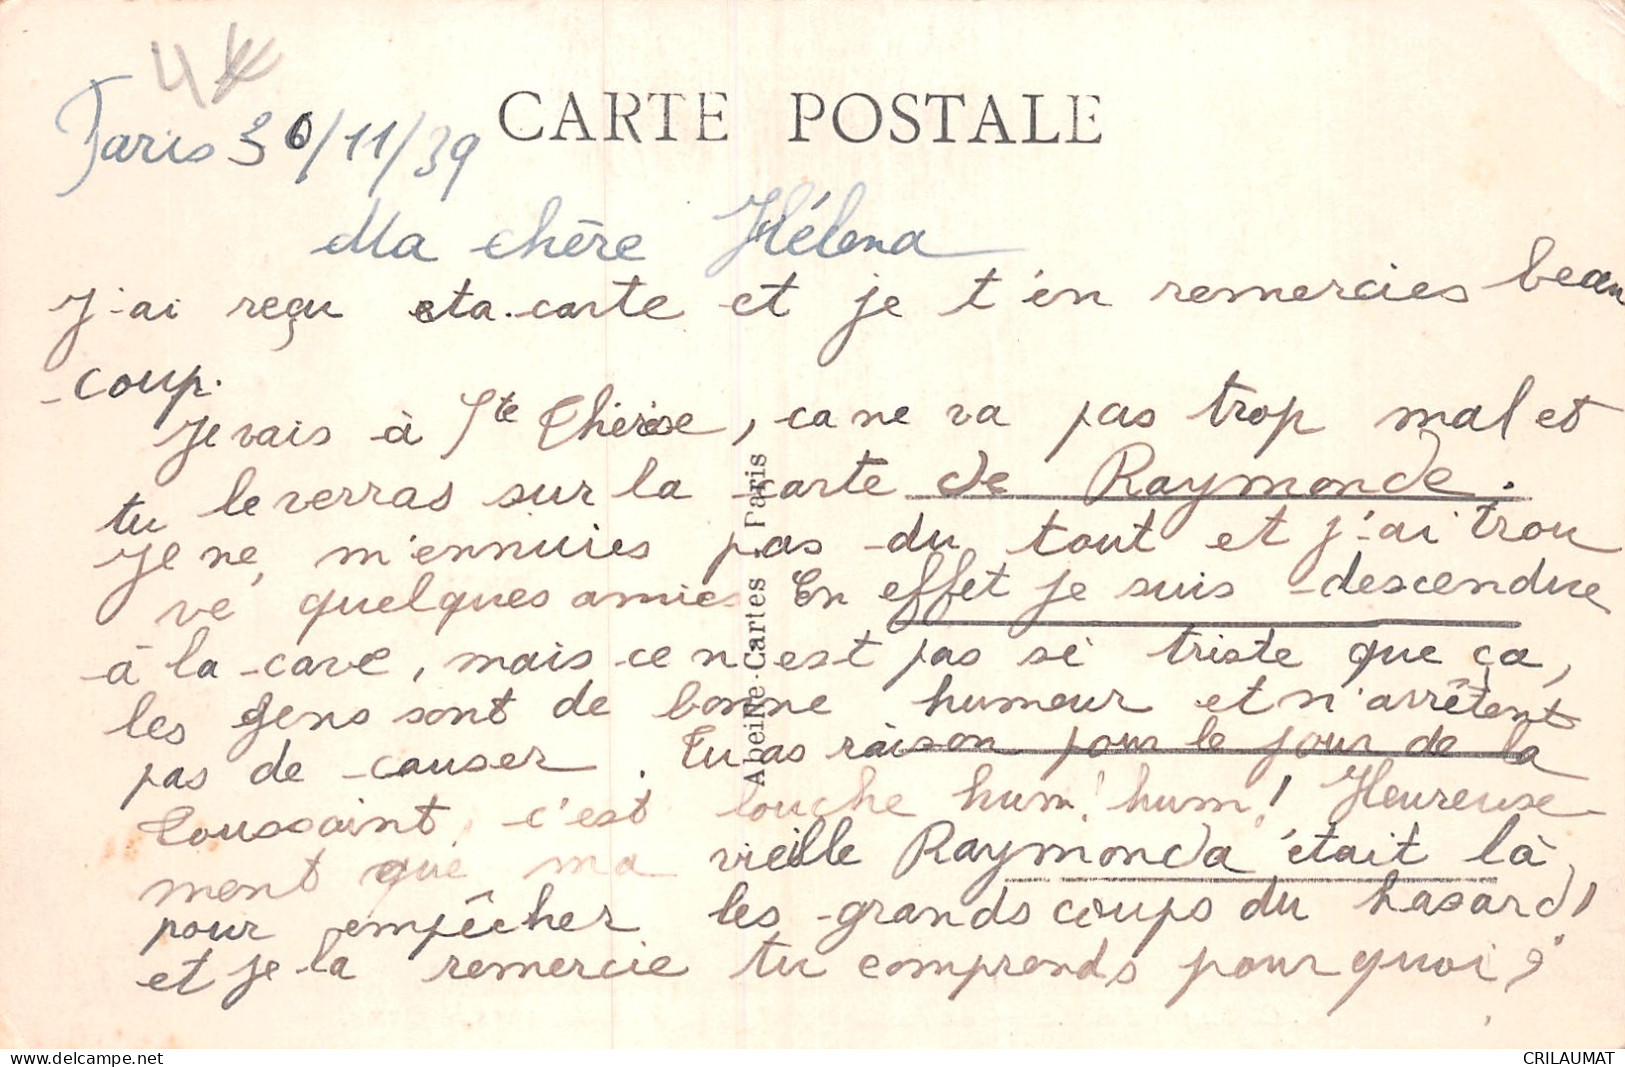 4€
CARTE POSTALE
Paris 30/11/39
Ma chère Hélena
J'ai reçu ta carte et je t'en remercies beau
-coup.
Je vais à Ste Thérèse, ca ne va pas trop mal et
tu le verras sur la carte de Raymonde.
Je ne m'ennuies pas du tout et j'ai trou
vé quelques amies En effet je suis descendue
à la cave, mais ce n'est pas si triste que ça,
les gens sont de bonne humeur et n'arrêtent
pas de causer. Tu as raison pour le jour de la
Toussaint, c'est louche hum! hum! Heureuse
ment que ma vieille Raymonda était là
pour empêcher les grands coups du hasard!
et je la remercie tu comprends pourquoi?
Abeille-Cartes Paris
CRILAUMAT